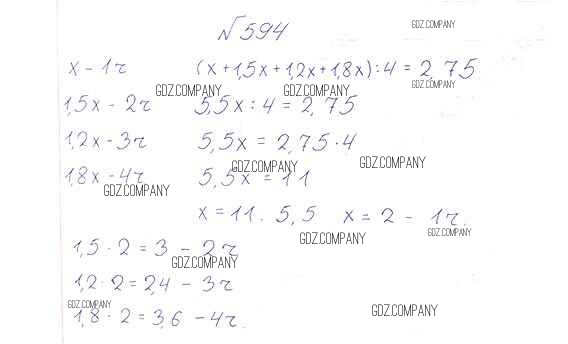 №594
GDZ.COMPANY
x - 1ч (x + 1,5x + 1,2x + 1,8x) : 4 = 2,75
GDZ.COMPANY GDZ.COMPANY GDZ.COMPANY
1,5x - 2ч 5,5x : 4 = 2,75
1,2x - 3ч 5,5x = 2,75 · 4
GDZ.COMPANY GDZ.COMPANY
1,8x - 4ч 5,5x = 11
GDZ.COMPANY
x = 11 : 5,5 x = 2 - 1ч.
GDZ.COMPANY GDZ.COMPANY
1,5 · 2 = 3 - 2ч
GDZ.COMPANY
1,2 · 2 = 2,4 - 3ч
GDZ.COMPANY GDZ.COMPANY
1,8 · 2 = 3,6 - 4ч.